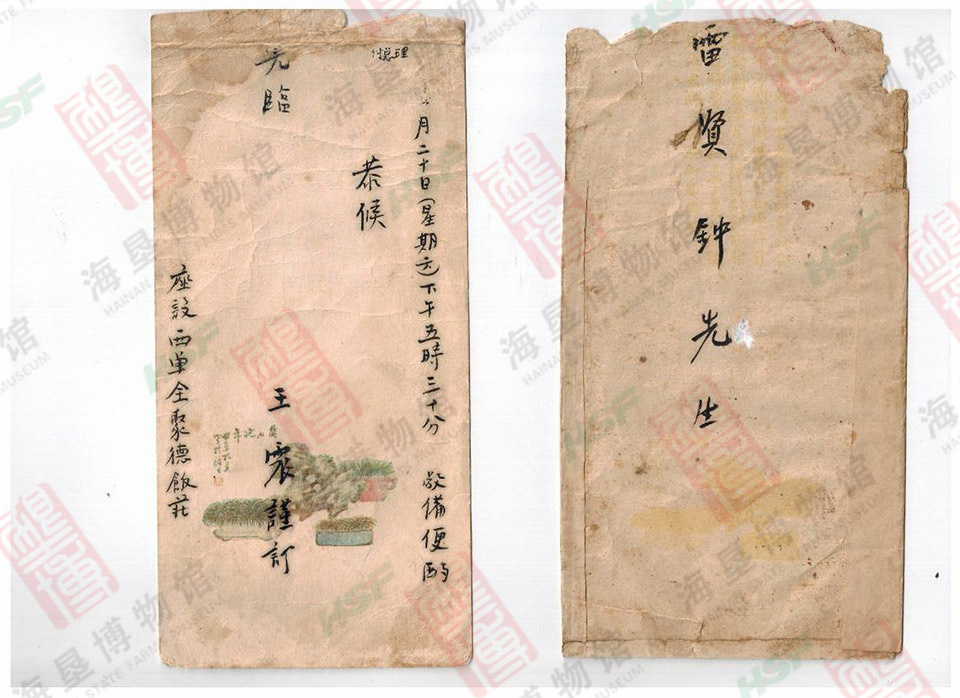 月二十日（星期六）下午五時三十分 敬備便酌
恭候
光臨
王震謹訂
座設西单全聚德飯莊
雷贤钟先生
海垦博物馆
HAINAN STATE FARMS MUSEUM
HSF